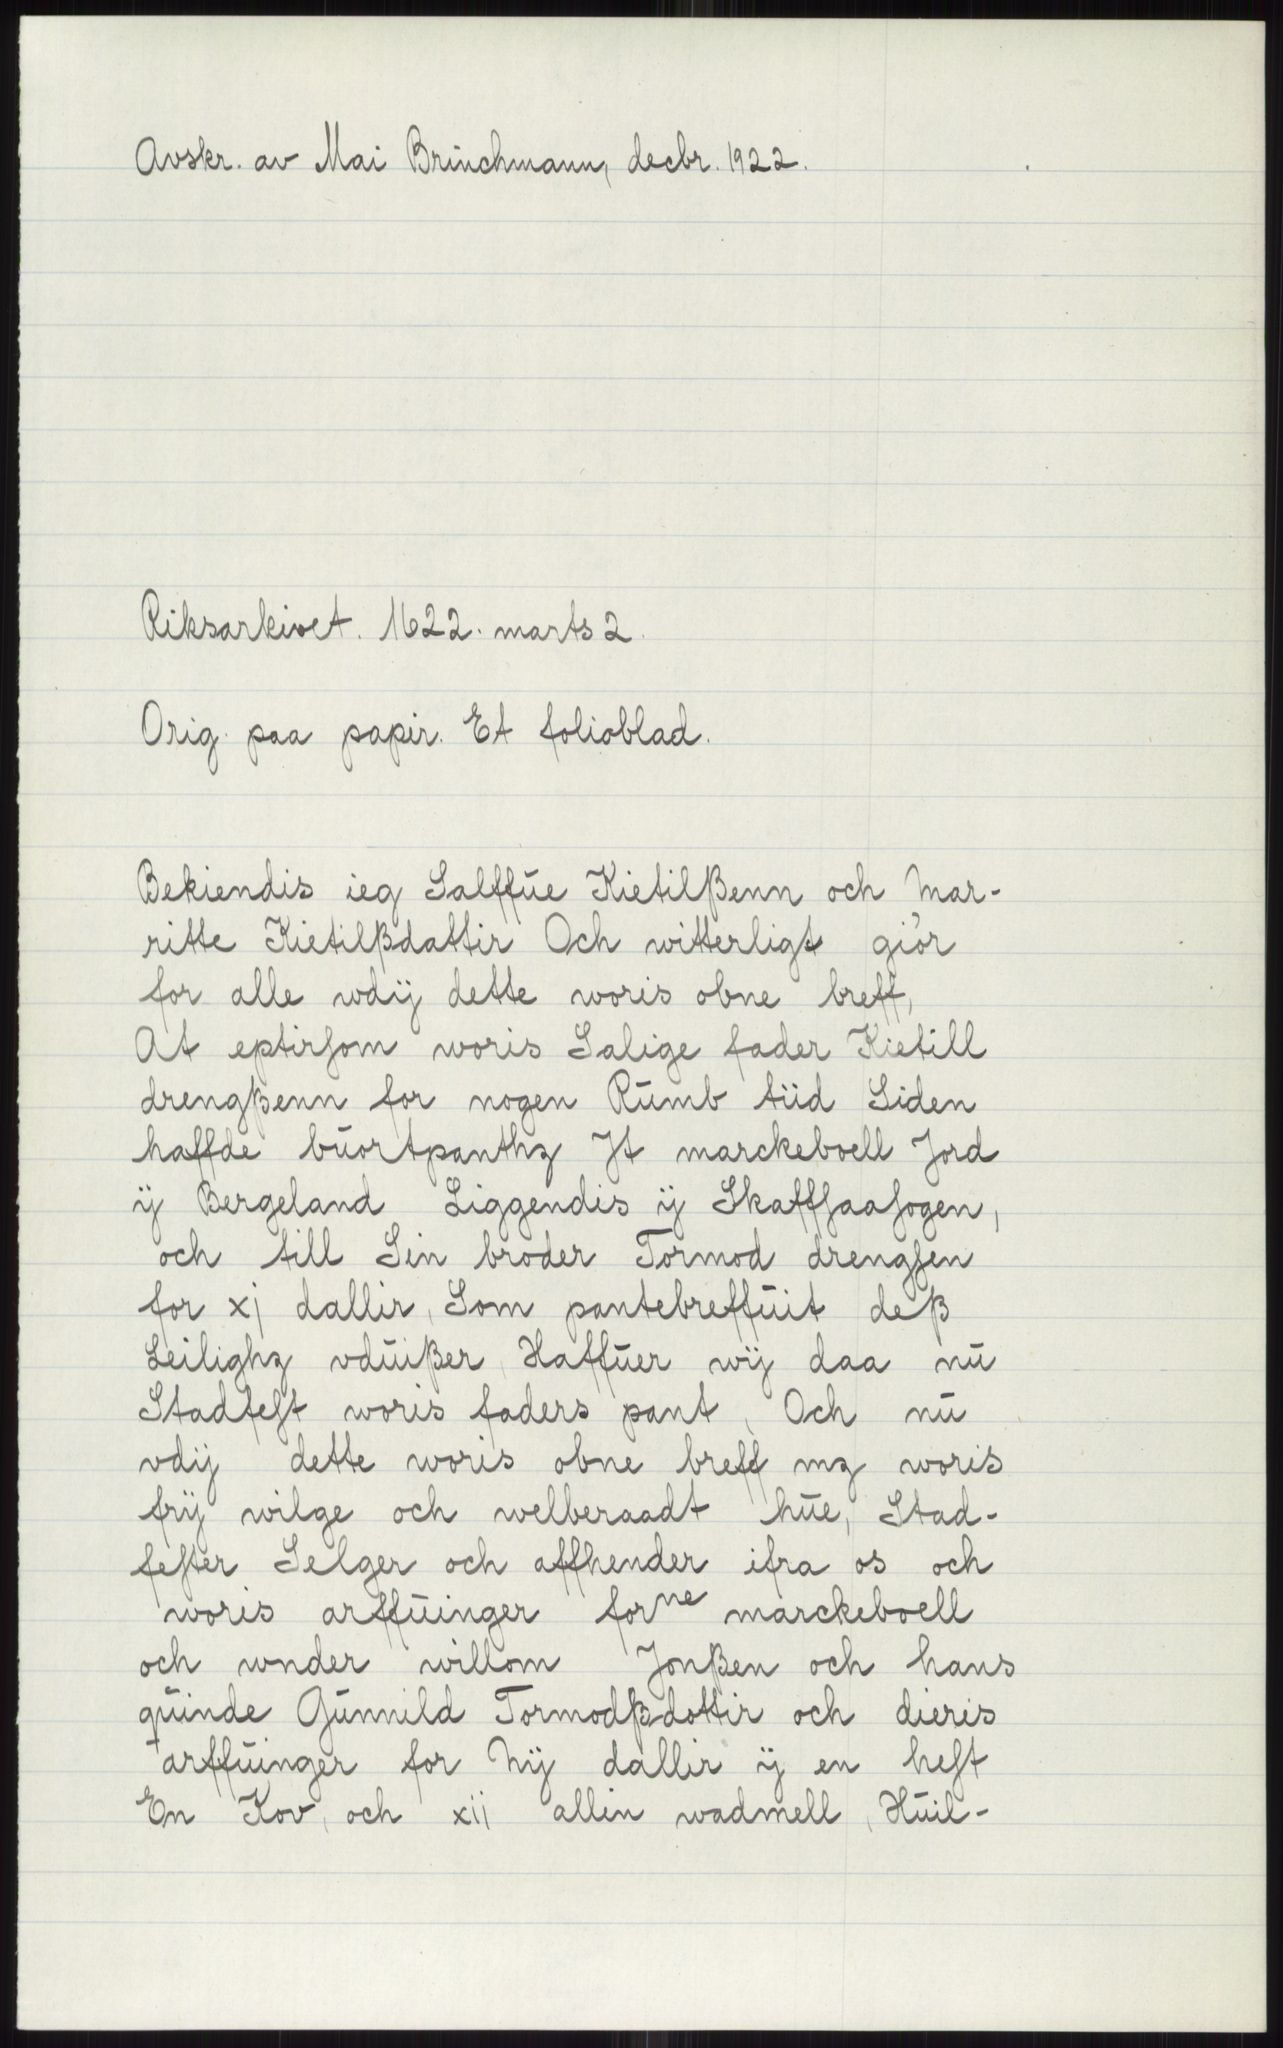 Avskr. av Mai Brinchmann, decbr. 1922.
Riksarkivet. 1622. marts 2.
Orig. paa papir. Et folioblad.
Bekiendis ieg Salffue Kietilßenn och Mar-
ritte Kietilßdattir Och witterligt giör
for alle wdÿ dette woris obne breff,
At eptirsom woris Salige fader Kietill
drengßenn for nogen Rumb tiid Siden
haffde buortpanthz Jt marckeboell Jord
ÿ Bergeland Liggendis ÿ Skaffsaasogen,
och till Sin broder Tormod drengsen
for xj dallir, Som pantebreffuit deß
Leilighz vduißer, Haffuer wÿ daa nu
Stadfest woris faders pant, Och nu
vdÿ dette woris obne breff mz woris
frÿ wilge och welberaadt hue, Stad-
fester Selger och affhender ifra os och
woris arffuinger forne marckeboell
och wnder willom Jonßen och hans
quinde Gunnild Tormodßdottir och dieris
arffuinger for Nÿ dallir ÿ en hest
En Kov, och xij allin wadmell, Huil-